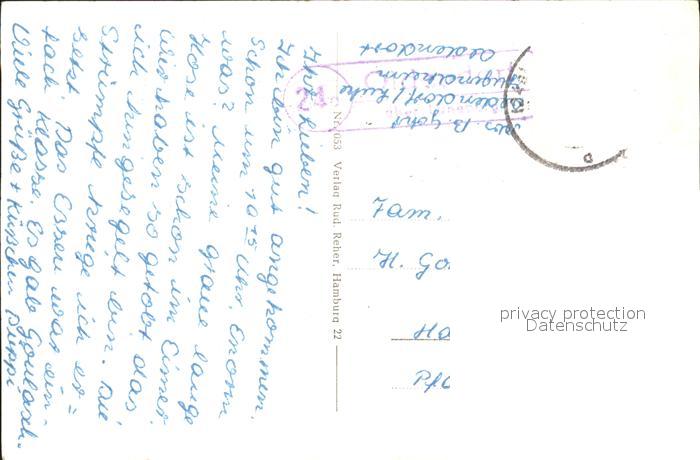 Ihr Lieben!
Ich bin gut angekommen.
Schon um 10 15 Uhr. Enorm
was? Meine graue lange
Hose ist schon im Eimer.
Wir haben so getobt das
ich hingesegelt bin. Die
Strümpfe kriege ich er=
setzt. Das Essen war ein-
fach Klasse. Es gab Goulasch.
Viele Grüße + Küsschen
Verlag Rud. Reher, Hamburg 22
Oedendorf
Jugendheim
Fam.
H. Go
Ha
privacy protection
Datenschutz